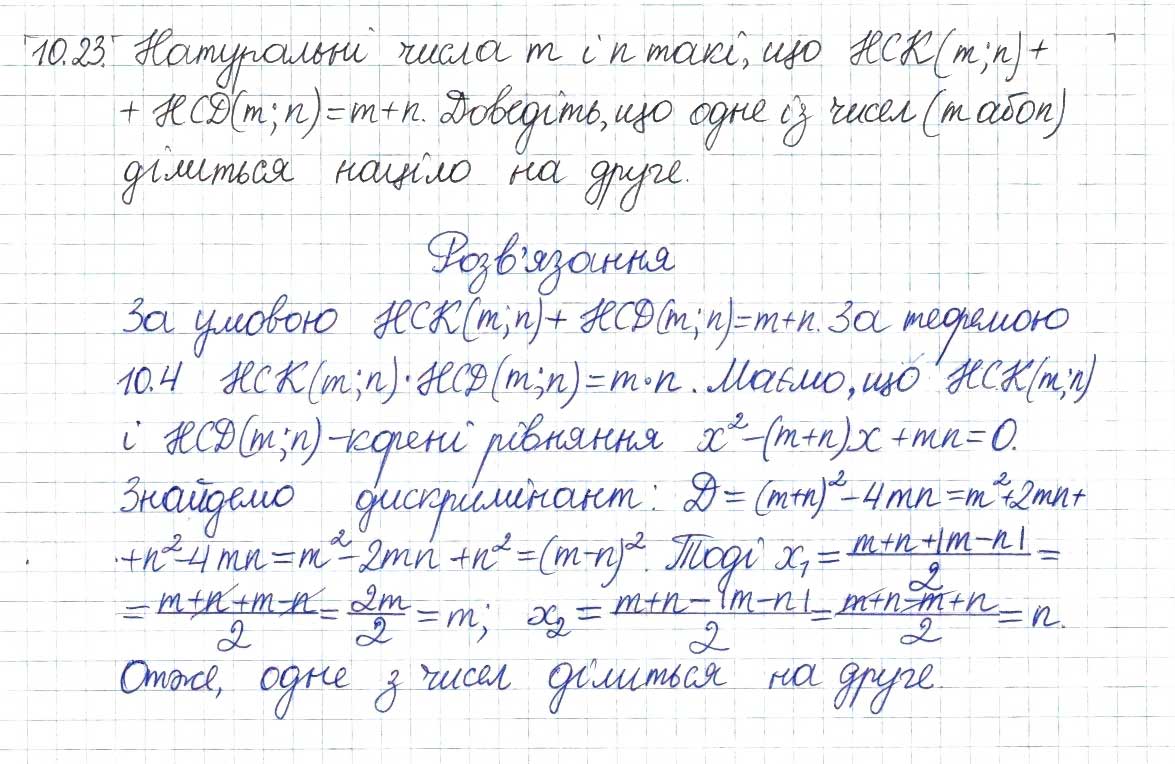 10.23. Натуральні числа m і n такі, що НСК(m;n)+
+ НСД(m;n)=m+n. Доведіть, що одне із чисел (m або n)
ділиться націло на друге.
Розв'язання
За умовою НСК(m;n)+ НСД(m;n)=m+n. За теоремою
10.4 НСК(m;n)·НСД(m;n)=m·n. Маємо, що НСК(m;n)
і НСД(m;n)-корені рівняння x²-(m+n)x+mn=0.
Знайдемо дискримінант: Д=(m+n)²-4mn=m²+2mn+
+n²-4mn=m²-2mn+n²=(m-n)². Тоді x₁=(m+n+|m-n|)/2=
=(m+n+m-n)/2=2m/2=m; x₂=(m+n-|m-n|)/2=(m+n-m+n)/2=n.
Отже, одне з чисел ділиться на друге.